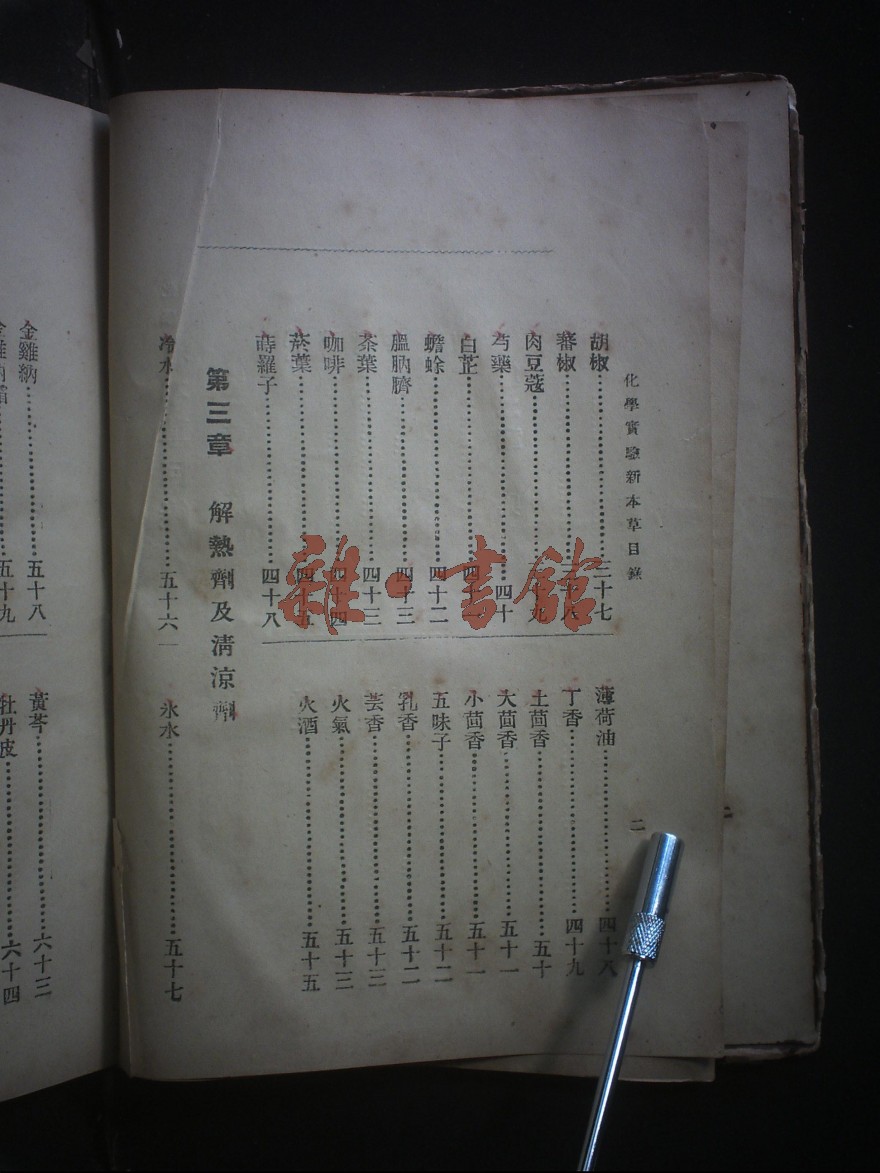 化學實驗新本草目錄
二
胡椒……三十七
蕃椒……三十八
肉豆蔻……三十九
芍藥……四十
白芷……四十
蟾蜍……四十二
膃肭臍……四十三
茶葉……四十三
咖啡……四十四
菸葉……四十五
蒔羅子……四十八
薄荷油……四十八
丁香……四十九
土茴香……五十
大茴香……五十一
小茴香……五十一
五味子……五十二
乳香……五十二
芸香……五十三
火氣……五十三
火酒……五十五
第三章 解熱劑及清涼劑
冷水……五十六
氷水……五十七
金雞納……五十八
五十九
黃芩……六十三
牡丹皮……六十四
雜·書館